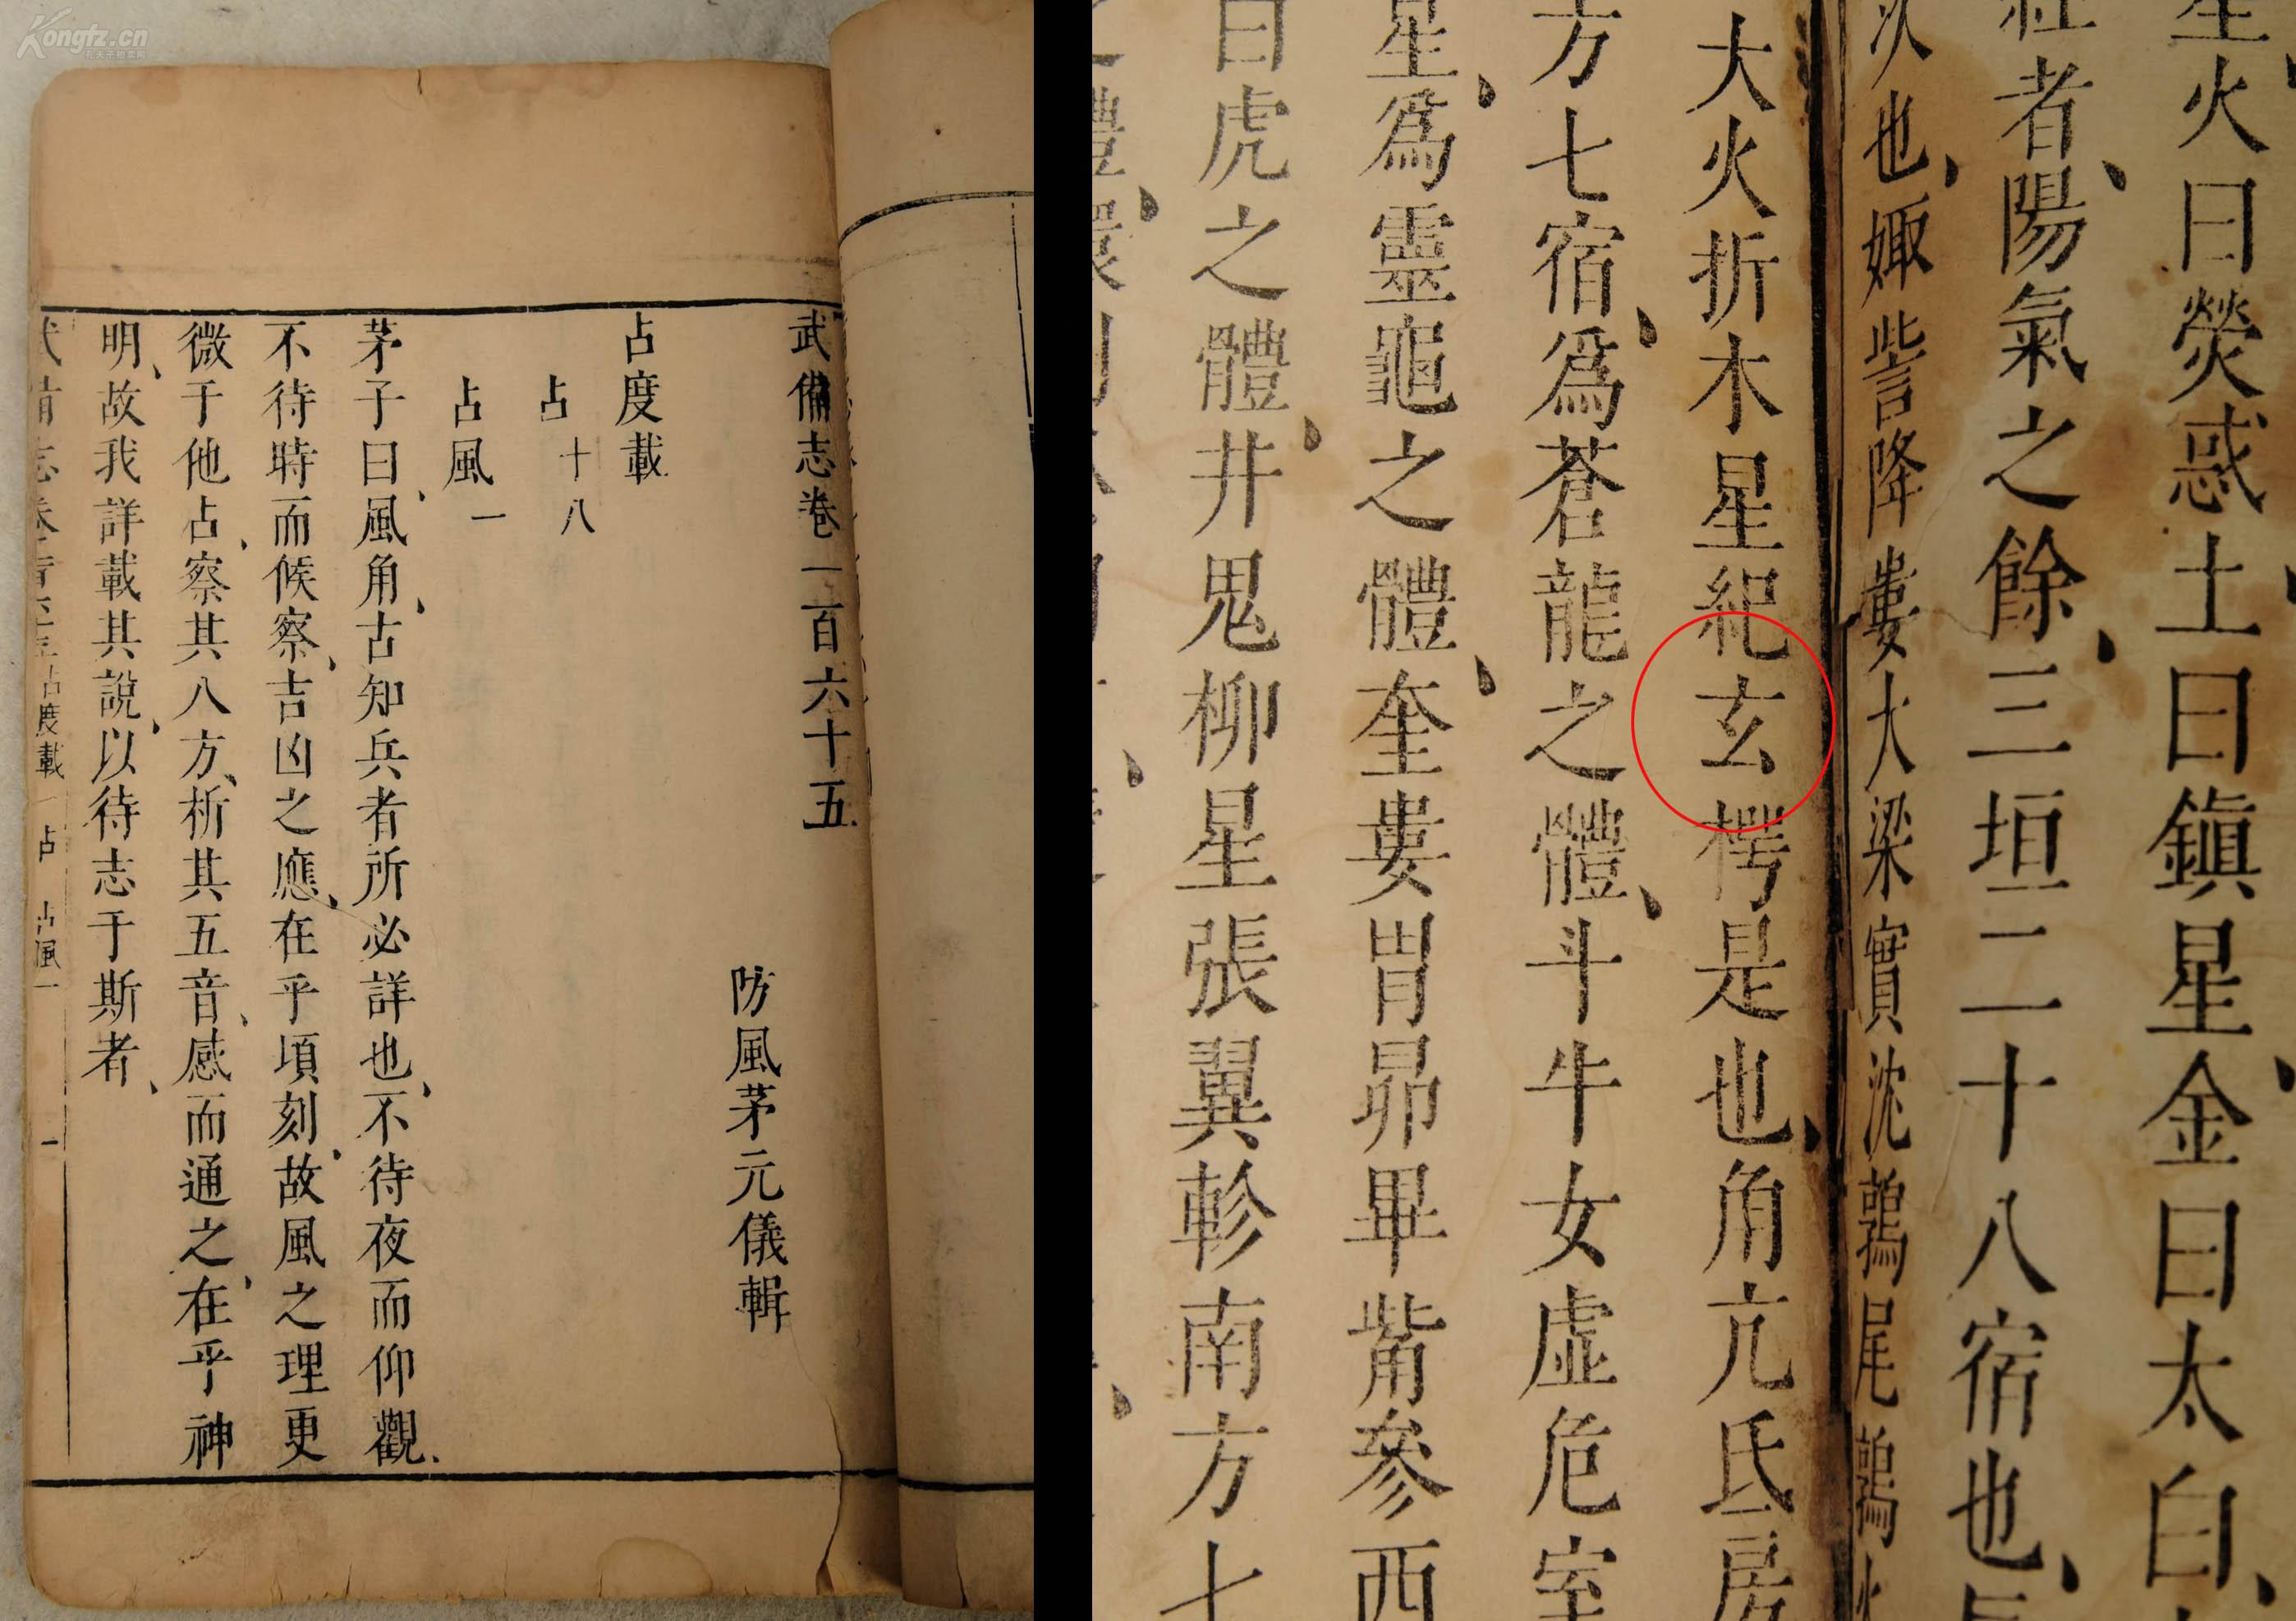 Kongfz.cn
武備志卷一百六十五
防風茅元儀輯
占度載
占 十八
占風一
茅子曰風角古知兵者所必詳也不待夜而仰觀
不待時而候察吉凶之應在乎頃刻故風之理更
微于他占察其八方析其五音感而通之在乎神
明故我詳載其說以待志于斯者
占度載 占 占風一 一
火曰熒惑土曰鎮星金曰太白
者陽氣之餘三垣二十八宿也
次也娵訾降婁大梁實沈鶉尾鶉火
大火折木星紀玄枵是也角亢氐房
方七宿爲蒼龍之體斗牛女虛危室
星爲靈龜之體奎婁胃昴畢觜參西
白虎之體井鬼柳星張翼軫南方七